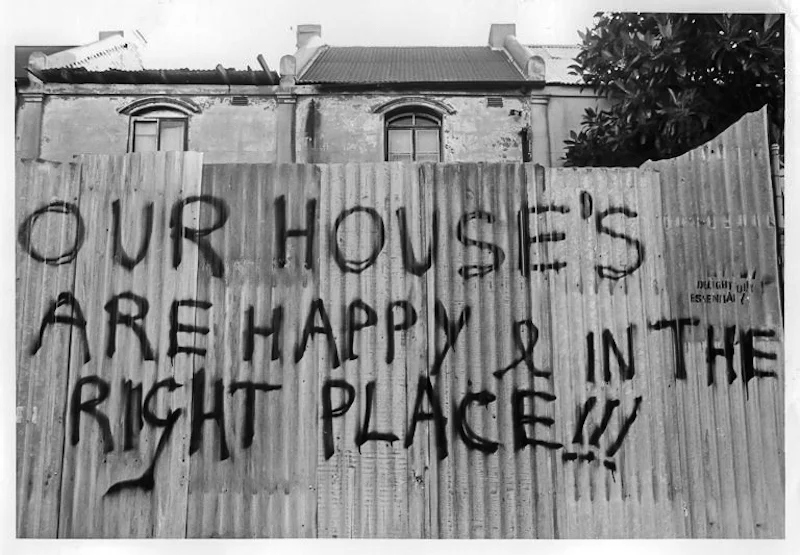 OUR HOUSE'S
ARE HAPPY & IN THE
RIGHT PLACE!!!
DELIGHT
ESSENTIAL